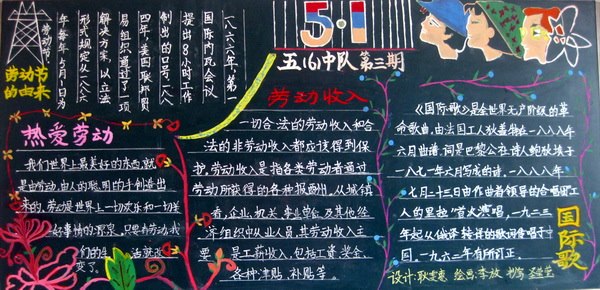 5·1
五(6)中队第三期
劳动节
的由来
一八六六年,第一
国际内瓦会议
提出8小时工作
制出的口号,一八
四年,美国联邦贸
易组织通过了一项
解决方案,以立法
形式规定从一八八六
年每年5月1日为
劳动节。
热爱劳动
我们世界上最美好的东西,就
是由劳动,由人的聪明的手创造出
来的,劳动是世界上一切欢乐和一切美
好事情的源泉,只要劳动,我
们的生活就改
变了。
劳动收入
一切合法的劳动收入和合
法的非劳动收入都应该得到保
护,劳动收入是指各类劳动者通过
劳动所获得的各种报酬。从城镇
看,企业,机关,事业单位及其他经
济组织中从业人员,其劳动收入主
要是工薪收入,包括工资,奖金、
各种津贴、补贴等。
《国际歌》是全世界无产阶级的革
命歌曲,由法国工人狄盖特在一八八八年
六月曲谱,词是巴黎公社诗人鲍狄埃于
一八七一年六月写成的诗,一八八八年
七月二十三日由作者领导的合唱团工
人的里拉"首次演唱,一九二三
年起从俄译转译的歌词传唱于中
国,一九六二年有所订正。
国际歌
设计:耿 绘画:李放 书写: